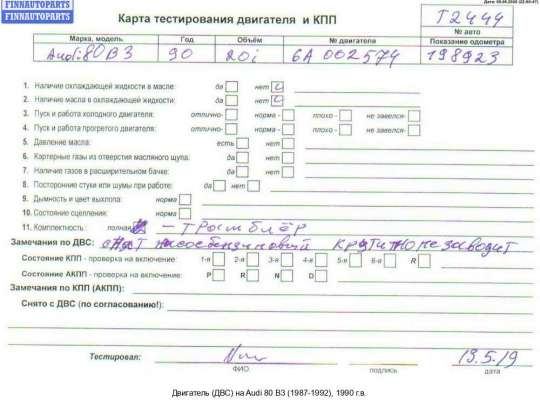 FINNAUTOPARTS
FINNAUTOPARTS
Карта тестирования двигателя и КПП
T2444
№ авто
Марка, модель Год Объём № двигателя Показание одометра
Audi 80 B3 90 20i 6A 002574 198923
1. Наличие охлаждающей жидкости в масле: да нет
2. Наличие масла в охлаждающей жидкости: да нет
3. Пуск и работа холодного двигателя: отлично- норма - плохо - не завелся-
4. Пуск и работа прогретого двигателя: отлично- норма - плохо - не завелся-
5. Давление масла: есть нет
6. Картерные газы из отверстия масляного щупа: да нет
7. Наличие газов в расширительном бачке: да нет
8. Посторонние стуки или шумы при работе: да нет
9. Дымность и цвет выхлопа: норма
10. Состояние сцепления: норма
11. Комплектность: полная - трамблёр
Замечания по ДВС: снят насос бензиновый крутит но не заводит
Состояние КПП - проверка на включение: 1-я 2-я 3-я 4-я 5-я 6-я R
Состояние АКПП - проверка на включение: P R N D
Замечания по КПП (АКПП):
Снято с ДВС (по согласованию!):
Тестировал: 13.5.19
ФИО подпись дата
Двигатель (ДВС) на Audi 80 B3 (1987-1992), 1990 г.в.